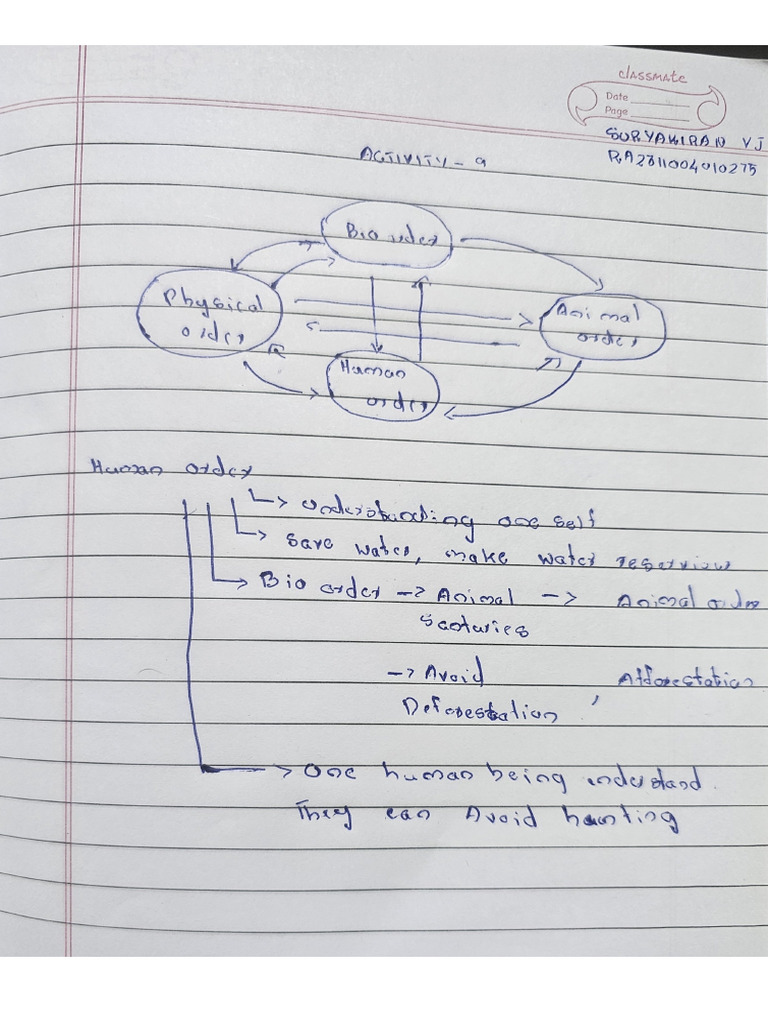 classmate
Date
Page
SURYAKIRAN VJ
RA2311004010275
ACTIVITY - 9
Bio order
Physical order
Animal order
Human order
Human order
-> understanding one self
-> save water, make water reserview
-> Bio order -> Animal -> Animal order
Santuries
-> Avoid , Afforestation
Deforestation
-> One human being understand.
They can Avoid hunting